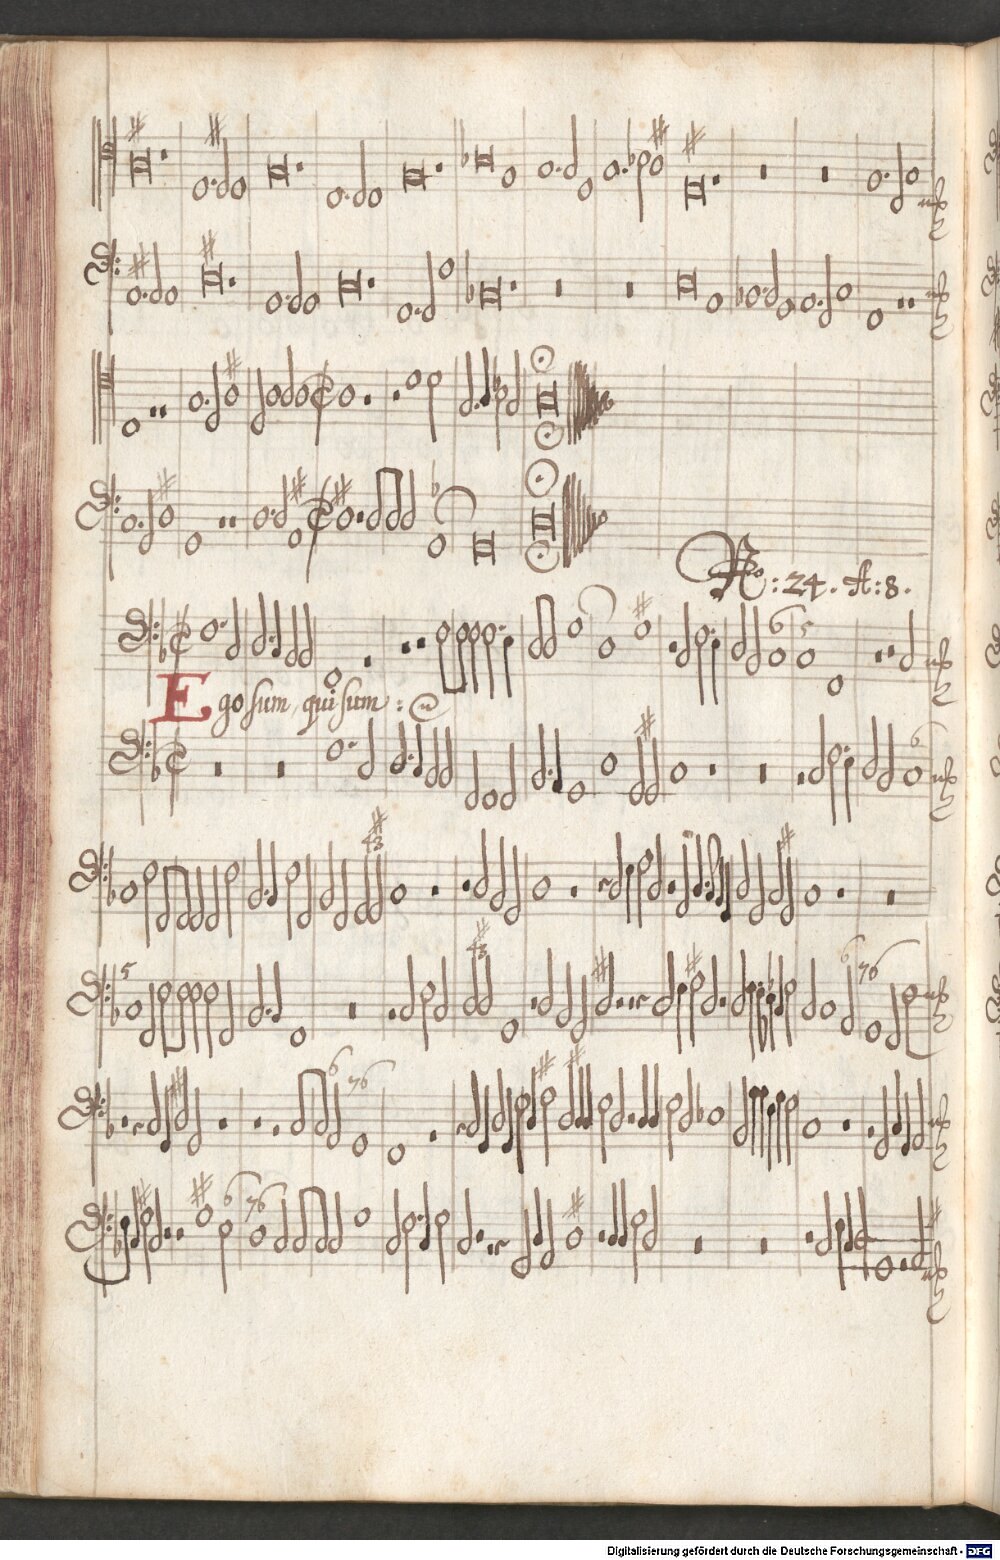 No: 24. A: 8.
Ego sum, qui sum:
Digitalisierung gefördert durch die Deutsche Forschungsgemeinschaft - DFG